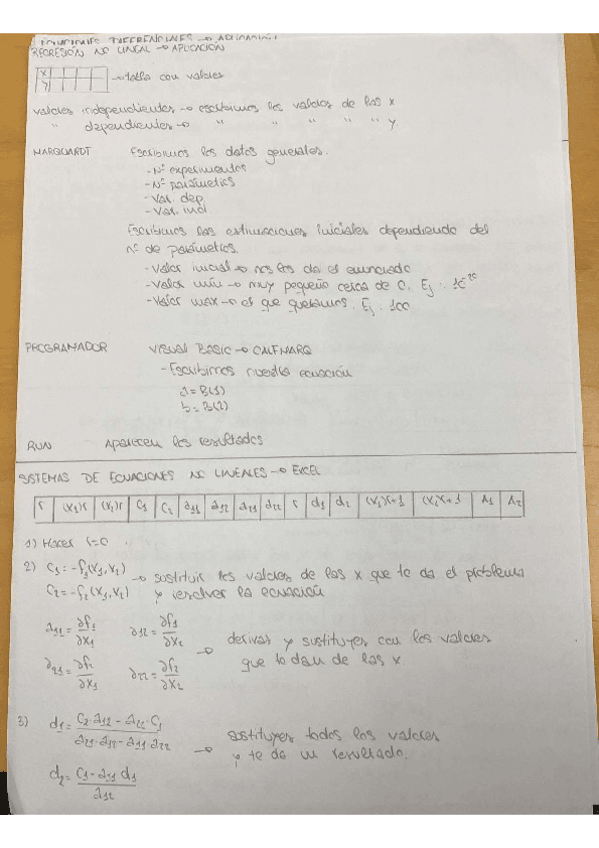 ECUACIONES DIFERENCIALES → APLICACIÓN
REGRESIÓN NO LINEAL → APLICACIÓN
x
y
→ tabla con valores
valores independientes → escribimos los valores de las x
" dependientes → " " " " " y
MARQUARDT Escribimos los datos generales.
- Nº experimentos
- Nº parámetros
- Var. dep
- Var. ind
Escribimos las estimaciones iniciales dependiendo del
nº de parámetros.
- Valor inicial → nos los da el enunciado
- Valor mín → muy pequeño cerca de 0. Ej: 10^-20
- Valor max → el que queramos. Ej: 100
PROGRAMADOR VISUAL BASIC → CALFMARQ
- Escribimos nuestra ecuación
a = B(1)
b = B(2)
RUN Aparecen los resultados
SISTEMAS DE ECUACIONES NO LINEALES → EXCEL
r (x₁)r (x₂)r C₁ C₂ a₁₁ a₁₂ a₂₁ a₂₂ r d₁ d₂ (x₁)r+1 (x₂)r+1 Δ₁ Δ₂
1) Hacer r=0
2) C₁ = -f₁(x₁,x₂) → sustituir los valores de las x que te da el problema
C₂ = -f₂(x₁,x₂) y resolver la ecuación
a₁₁ = ∂f₁/∂x₁ a₁₂ = ∂f₁/∂x₂ → derivas y sustituyes con los valores
a₂₁ = ∂f₂/∂x₁ a₂₂ = ∂f₂/∂x₂ que te dan de las x
3) d₁ = (C₂·a₁₂ - a₂₂·C₁)/(a₂₁·a₁₂ - a₁₁·a₂₂) → sustituyes todos los valores
y te da un resultado.
d₂ = (C₁ - a₁₁ d₁)/a₁₂